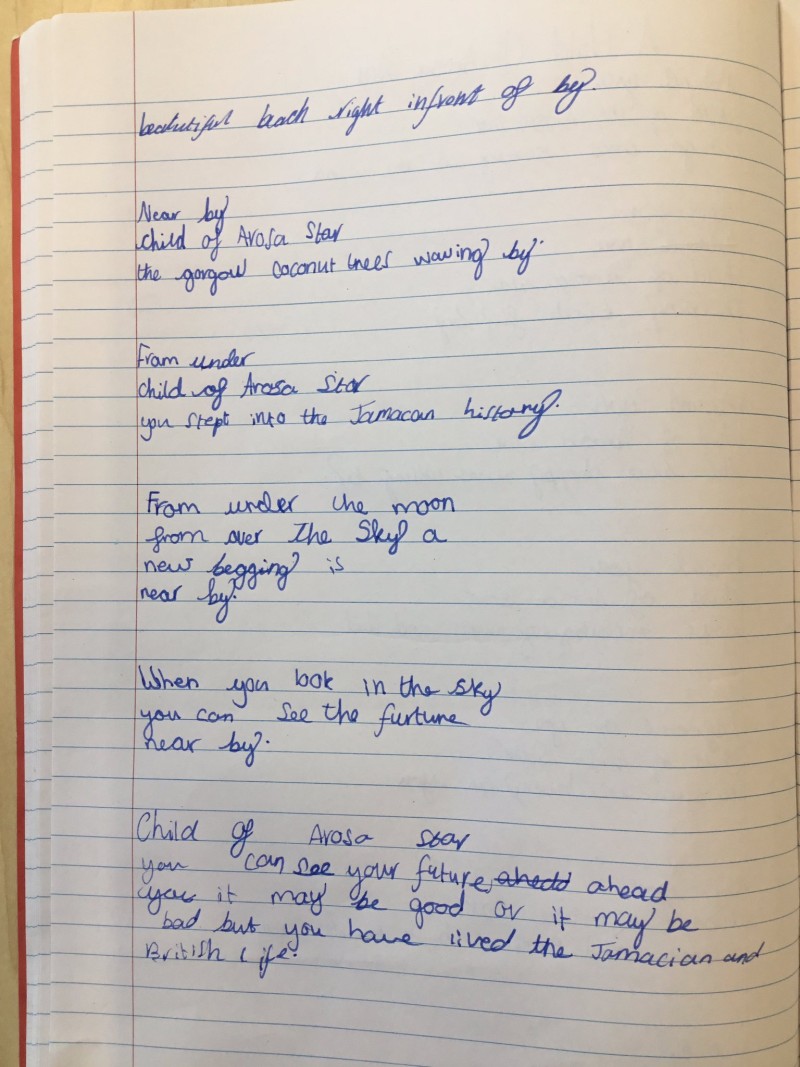 beatutiful beach right infront of by.
Near by
child of Arosa Star
the gorgou coconut trees waving by.
From under
child of Arosa Star
you stept into the Jamacan history.
From under the moon
from over The Sky a
new begging is
near by.
When you look in the sky
you can see the furtune
near by.
Child of Arosa star
you can see your future, ahedd ahead
you it may be good or it may be
bad but you have lived the Jamacian and
British life.